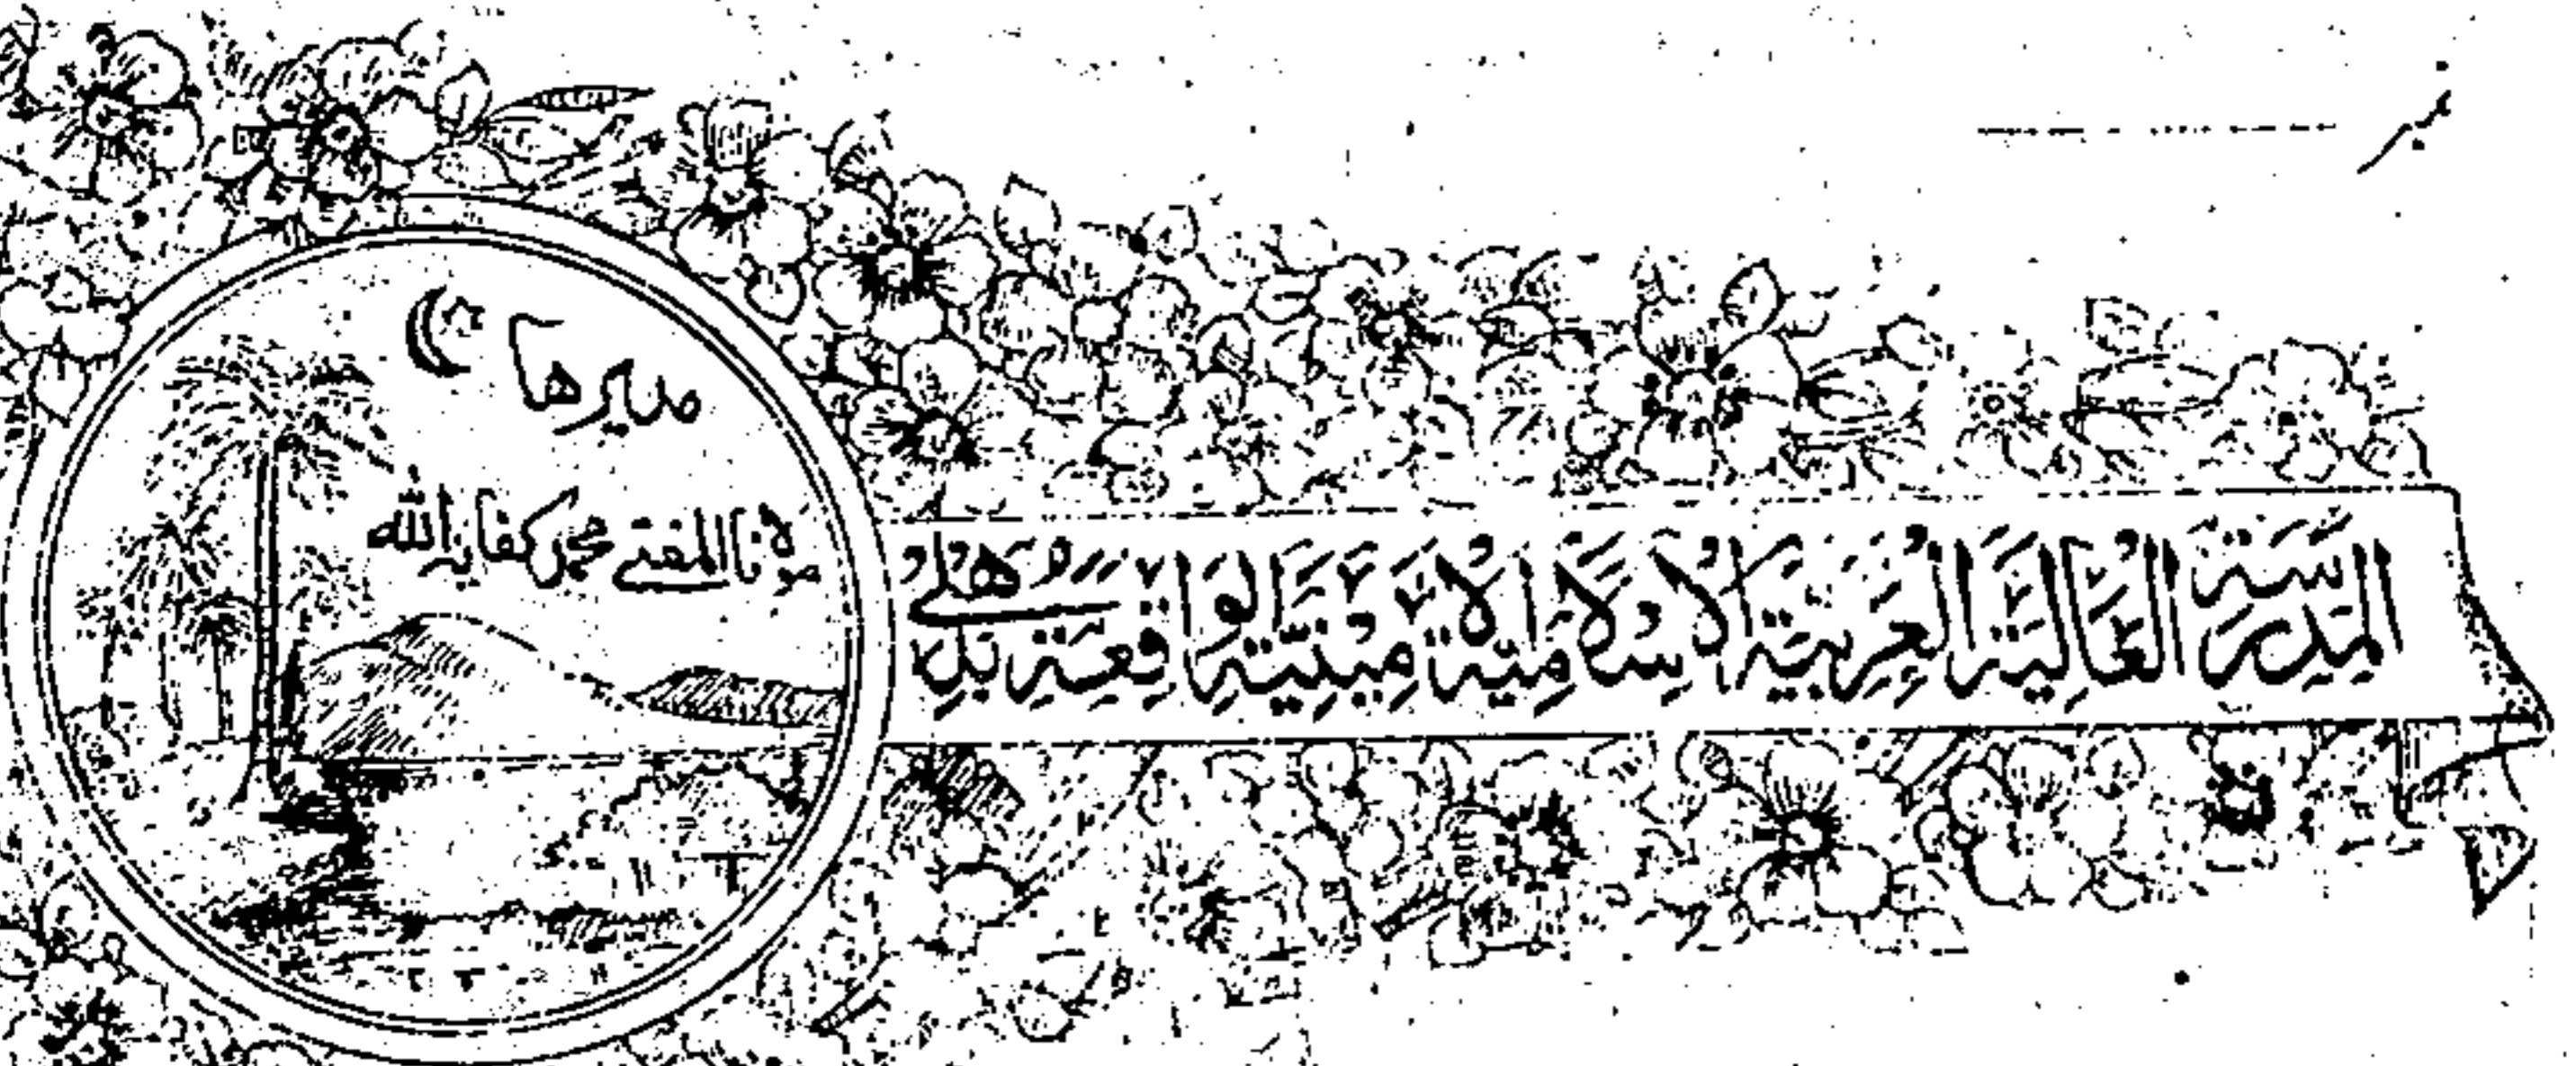 نمبر
المَدرَسَة العَالِيَة العَرَبِيَّة الاِسْلَامِيَّة الاَمِيْنِيَّة الوَاقِعَة بَدِهْلِي
مدیرها
مولانا المفتی محمد کفایة الله